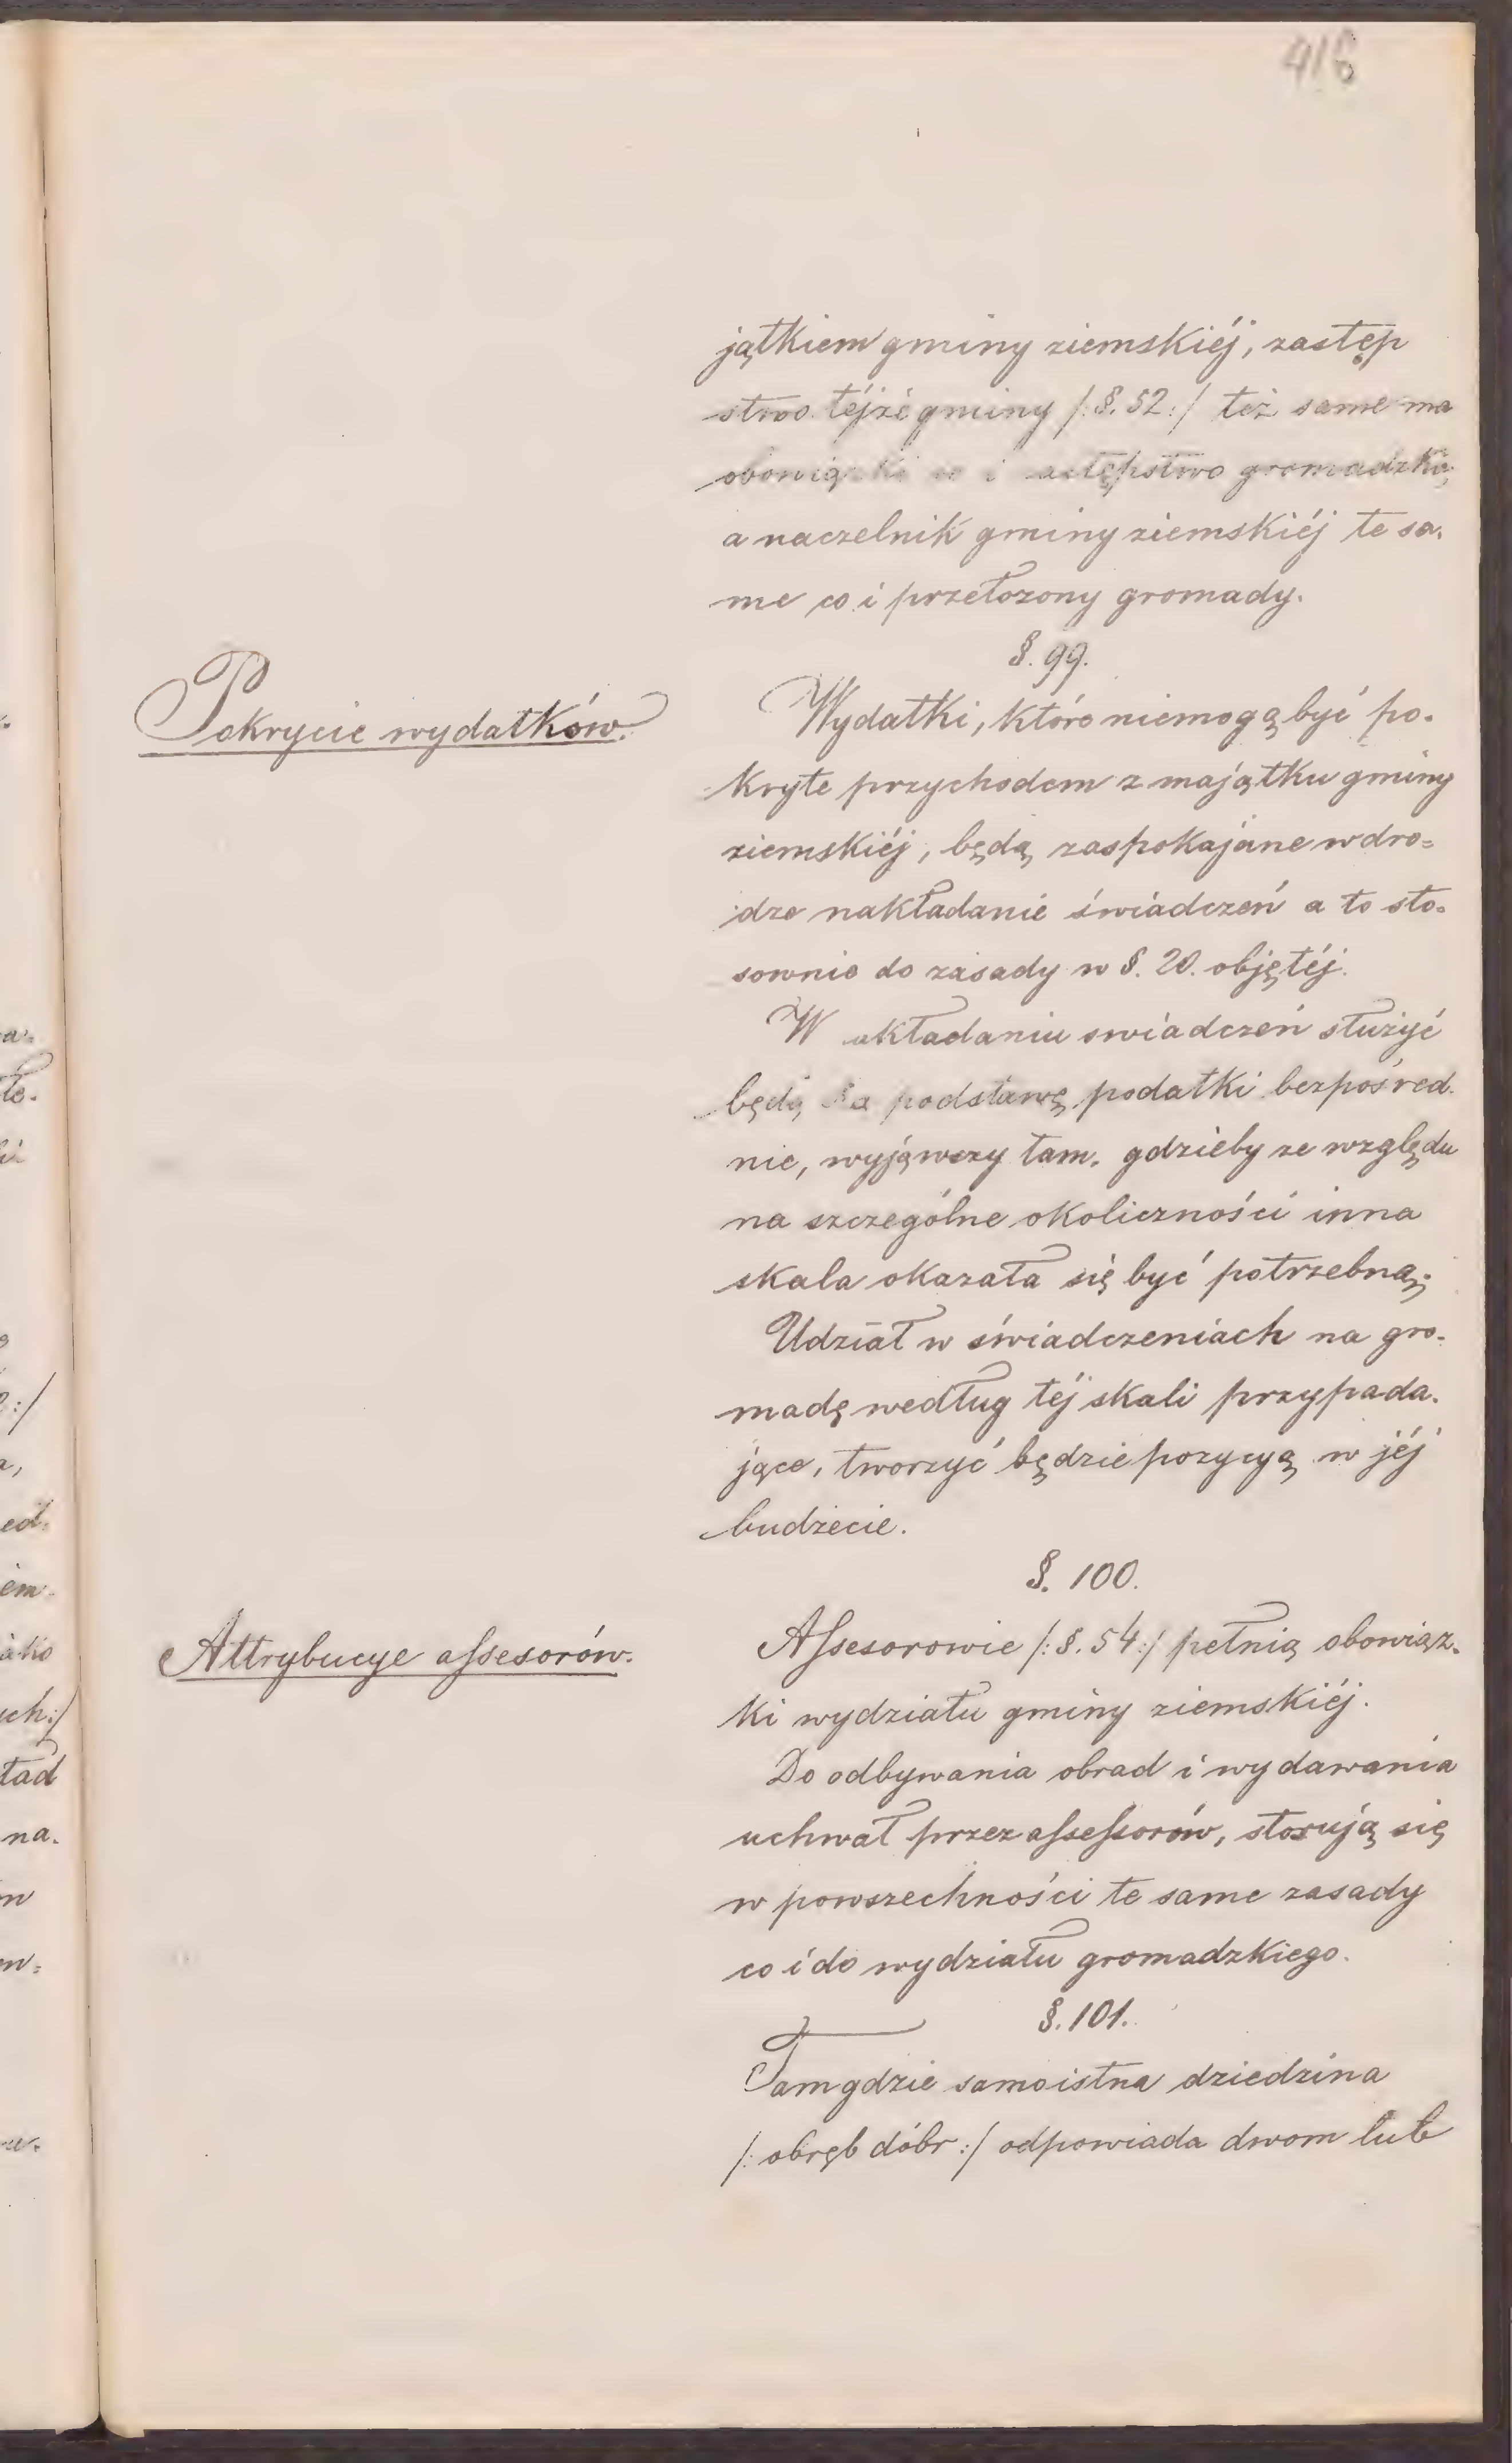 416
jątkiem gminy ziemskiéj, zastęp
stwo téjże gminy /:§. 52:/ też same ma
obowiązki co i zastępstwo gromadzkie,
a naczelnik gminy ziemskiéj te sa-
me co i przełożony gromady.
§. 99.
Pokrycie wydatków.
Wydatki, które niemogą być po-
kryte przychodem z majątku gminy
ziemskiéj, będą zaspokajane w dro=
dze nakładanie świadczeń a to sto-
sownie do zasady w §. 20. objętéj.
W układaniu świadczeń służyć
będą za podstawę podatki bezpośred-
nie, wyjąwszy tam, gdzieby ze względu
na szczególne okoliczności inna
skala okazała się być potrzebną.
Udział w świadczeniach na gro-
madę według téj skali przypada-
jące, tworzyć będzie pozycyą w jéj
budżecie.
§. 100.
Attrybucye assesorów.
Assesorowie /:§. 54:/ pełnią obowiąz-
ki wydziału gminy ziemskiéj.
Do odbywania obrad i wydawania
uchwał przez assessorów, stosują się
w powszechności te same zasady
co i do wydziału gromadzkiego.
§. 101.
Tam gdzie samoistna dziedzina
/: obręb dóbr:/ odpowiada dwom lub